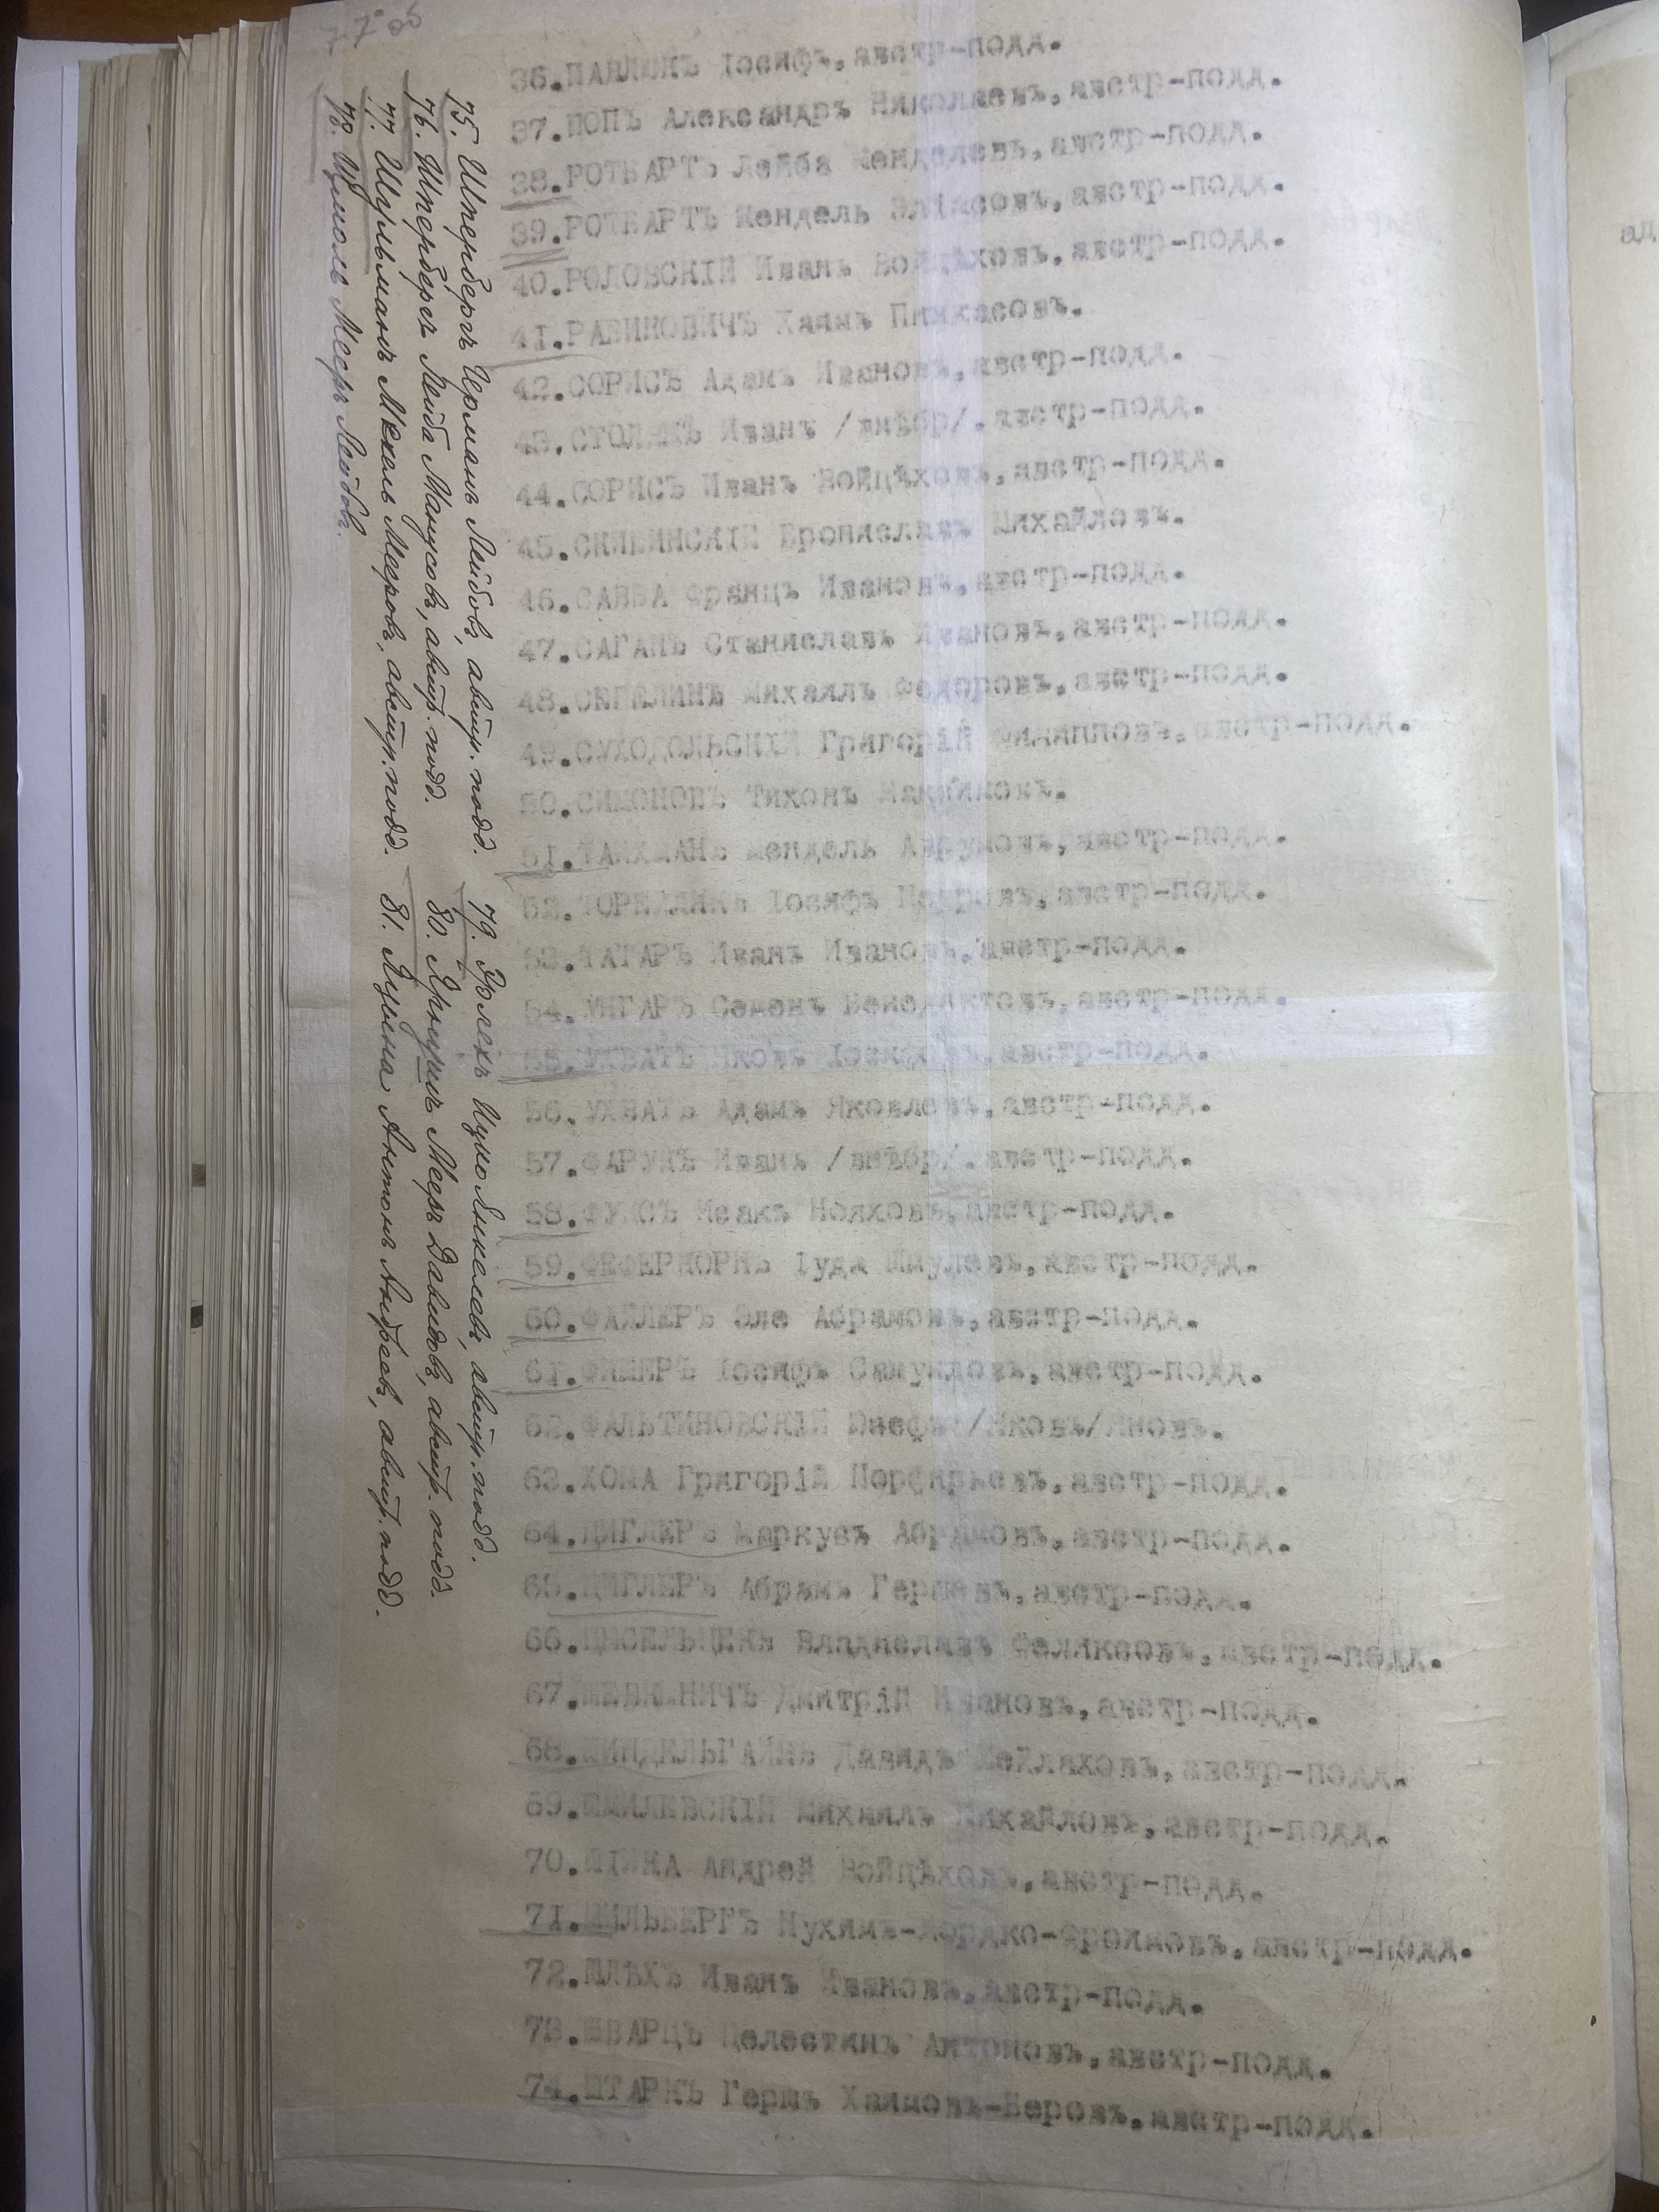 77 об
36.ПАВЛЮКЪ Іосифъ, австр-подд.
37.ПОПЪ Александръ Николаевъ, австр-подд.
38.РОТБАРТЪ Лейба Менделевъ, австр-подд.
39.РОТБАРТЪ Мендель Эліасовъ, австр-подд.
40.РОЛОВСКІЙ Иванъ Войцѣховъ, австр-подд.
41.РАБИНОВИЧЪ Хаимъ Пинкасовъ.
42.СОРИСЪ Адамъ Ивановъ, австр-подд.
43.СТОЛЯКЪ Иванъ /внѣбр/. австр-подд.
44.СОРИСЪ Иванъ Войцѣховъ, австр-подд.
45. Брониславъ Михайловъ.
46.САВВА Францъ Ивановъ, австр-подд.
47.САГАНЪ Станиславъ Ивановъ, австр-подд.
48.СЕГЕЛИНЪ Михаилъ Федоровъ, австр-подд.
49.СУХОДОЛЬСКІЙ Григорій Филипповъ, австр-подд.
50.СИМОНОВЪ Тихонъ
51.ТАЙХМАНЪ Мендель Аврумовъ, австр-подд.
52. Іосифъ Петровъ, австр-подд.
53.ТАТАРЪ Иванъ Ивановъ, австр-подд.
54.УНГАРЪ Семенъ Бенедиктовъ, австр-подд.
55.УХВАТЪ Яковъ австр-подд.
56.УХВАТЪ Адамъ Яковлевъ, австр-подд.
57.ФАРУНЪ Иванъ /внѣбр/. австр-подд.
58.ФУКСЪ Исакъ Нояховъ, австр-подд.
59.ФЕФЕРКОРНЪ Іуда Шмулевъ, австр-подд.
60.ФАЛЛЕРЪ Эле Абрамовъ, австр-подд.
61.ФИШЕРЪ Іосифъ Самуиловъ, австр-подд.
62.ФАЛЬТИНОВСКІЙ Юзефъ /Яковъ/Яновъ.
63.ХОМА Григорій Порфирьевъ, австр-подд.
64.ЦИГЛЕРЪ Маркусъ Абрамовъ, австр-подд.
65.ЦИГЛЕРЪ Абрамъ Гершевъ, австр-подд.
66. Владиславъ Феликсовъ, австр-подд.
67. Дмитрій Ивановъ, австр-подд.
68.ШИНДЕЛЬГАЙМЪ Давидъ Мейлаховъ, австр-подд.
69.ШМИЛЕВСКІЙ Михаилъ Михайловъ, австр-подд.
70. Андрей Войцѣховъ, австр-подд.
71.ШИЛЬБЕРГЪ Нухимъ-Мордко-Фроимовъ, австр-подд.
72.ШЛЯХЪ Иванъ Ивановъ, австр-подд.
73.ШВАРЦЪ Целестинъ Антоновъ, австр-подд.
74.ШТАРКЪ Гершъ Хаимовъ-Беровъ, австр-подд.
75. Шпербергъ Германъ Лейбовъ, австр. подд.
76. Шпербергъ Лейба Манусовъ, австр. подд.
77. Шульманъ Мехель Мееровъ, австр. подд.
78. Мееръ Лейбовъ.
79. Эрлехъ Ицко Янкелевъ, австр. подд.
80. Мееръ Давидовъ, австр. подд.
81. Яцына Антонъ Андреевъ, австр. подд.